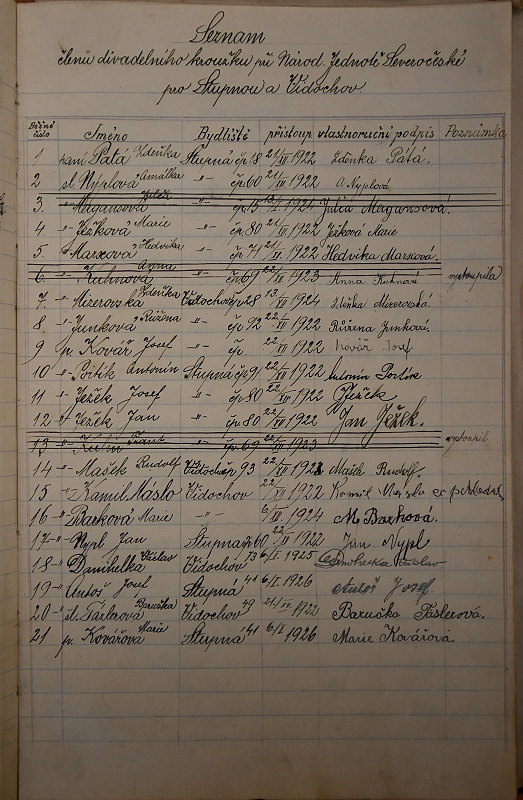 Seznam
členů divadelního kroužku při Národ. Jednotě Severočeské
pro Stupnou a Vidochov
Běžné číslo Jméno Bydliště přístoup. vlastnoruční podpis Poznámka
1 paní Patá Zdeňka Stupná čp. 18 21/XII 1922 Zdeňka Patá.
2 sl. Nyplová Amálka -"- čp. 60 21/XII 1922 A. Nyplová
3. -"- Magansová Julča -"- čp. 15 1924 Julia Magansová.
4 -"- Ježková Marie -"- čp. 80 21/XII 1922 Ježková Marie
5. -"- Marxová Hedvika -"- čp. 71 21/XII 1922 Hedvika Marxová.
6. -"- Kuhnová Anna -"- čp. 69 22/XII 1923 Anna Kuhnová vystoupila
7 -"- Mizerovská Zdeňka Vidochov 28 13/XII 1924 Mizerovská
8. -"- Junková Růžena -"- čp. 92 22/XII 1922 Růžena Junková.
9 p. Kovář Josef -"- čp. 22/XII 1922 Kovář Josef
10 -"- Antonín Stupná čp. 91 22/XII 1922 Antonín
11 -"- Ježek Josef -"- čp. 80 22/XII 1922 Ježek
12 -"- Ježek Jan -"- čp. 80 22/XII 1922 Jan Ježek.
13 -"- Kuhn Frant. -"- čp. 69 22/XII 1923 vystoupil
14 -"- Mašek Rudolf Vidochov čp. 93 22/XII 1922 Mašek Rudolf.
15 -"- Kamil Máslo Vidochov 22/XII 1922 Kamil Máslo
16 -"- Barková Marie -"- 6/I 1924 M. Barková.
17 -"- Nypl Jan Stupná čp. 60 22/XII 1922 Jan Nypl
18 -"- Danihelka Václav Vidochov 73 6/I 1925 Danihelka Václav
19 -"- Antoš Josef Stupná 41 6/I 1926 Antoš Josef.
20 -"- sl. Fáslerová Baruška Vidochov 49 21/XII 1922 Baruška Fáslerová.
21 p. Kovářová Marie Stupná 41 6/I 1926 Marie Kovářová.